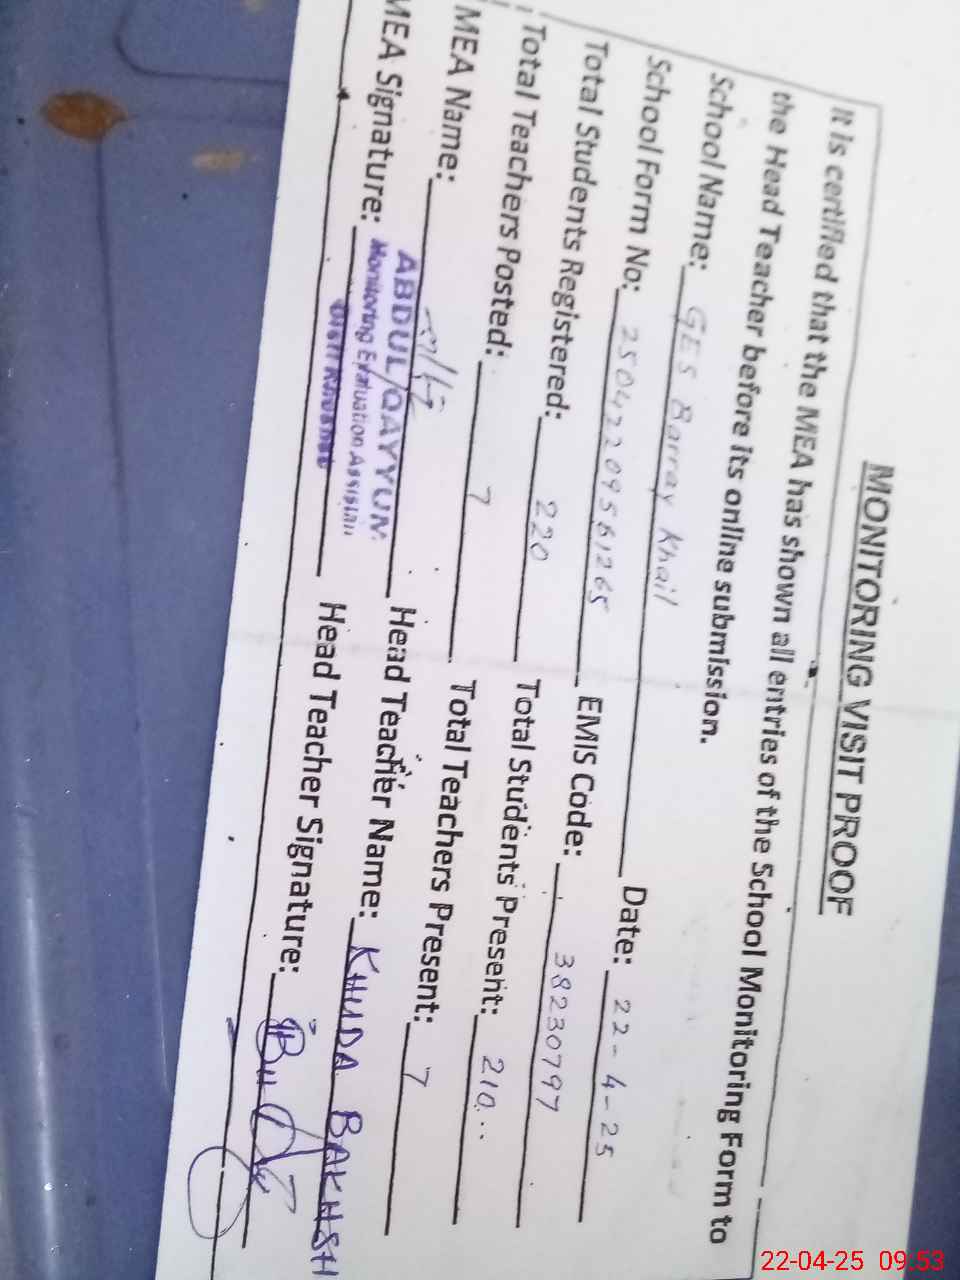 MONITORING VISIT PROOF
It is certified that the MEA has shown all entries of the School Monitoring Form to
the Head Teacher before its online submission.
School Name: GES Barray Khail Date: 22-4-25
School Form No: 25042209561265 EMIS Code: 38230797
Total Students Registered: 220 Total Students Present: 210
Total Teachers Posted: 7 Total Teachers Present: 7
MEA Name: ABDUL QAYYUM Head Teacher Name: KHUDA BAKHSH
Monitoring Evaluation Assistant
MEA Signature: Head Teacher Signature:
22-04-25 09.53